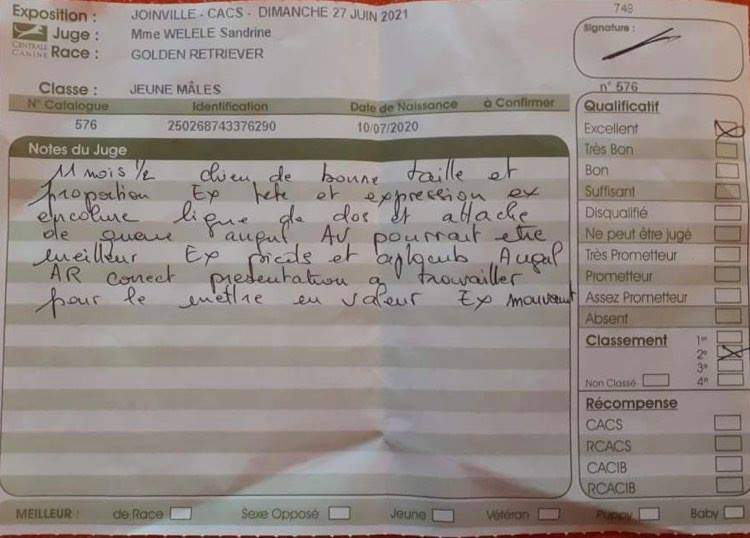 748
Exposition : JOINVILLE - CACS - DIMANCHE 27 JUIN 2021
Juge : Mme WELELE Sandrine
CENTRALE CANINE
Race : GOLDEN RETRIEVER
Classe : JEUNE MÂLES
Signature :
n° 576
N° Catalogue Identification Date de Naissance à Confirmer
576 250268743376290 10/07/2020
Notes du Juge
11 mois 1/2 chien de bonne taille et
proportion Ex tete et expression ex
encolure ligne de dos et attache
de queue AV pourrait etre
meilleur Ex pieds et
AR correct presentation a travailler
pour le mettre en valeur Ex
Qualificatif
Excellent
Très Bon
Bon
Suffisant
Disqualifié
Ne peut être jugé
Très Prometteur
Prometteur
Assez Prometteur
Absent
Classement 1er
2e
3e
Non Classé 4e
Récompense
CACS
RCACS
CACIB
RCACIB
MEILLEUR : de Race Sexe Opposé Jeune Vétéran Puppy Baby